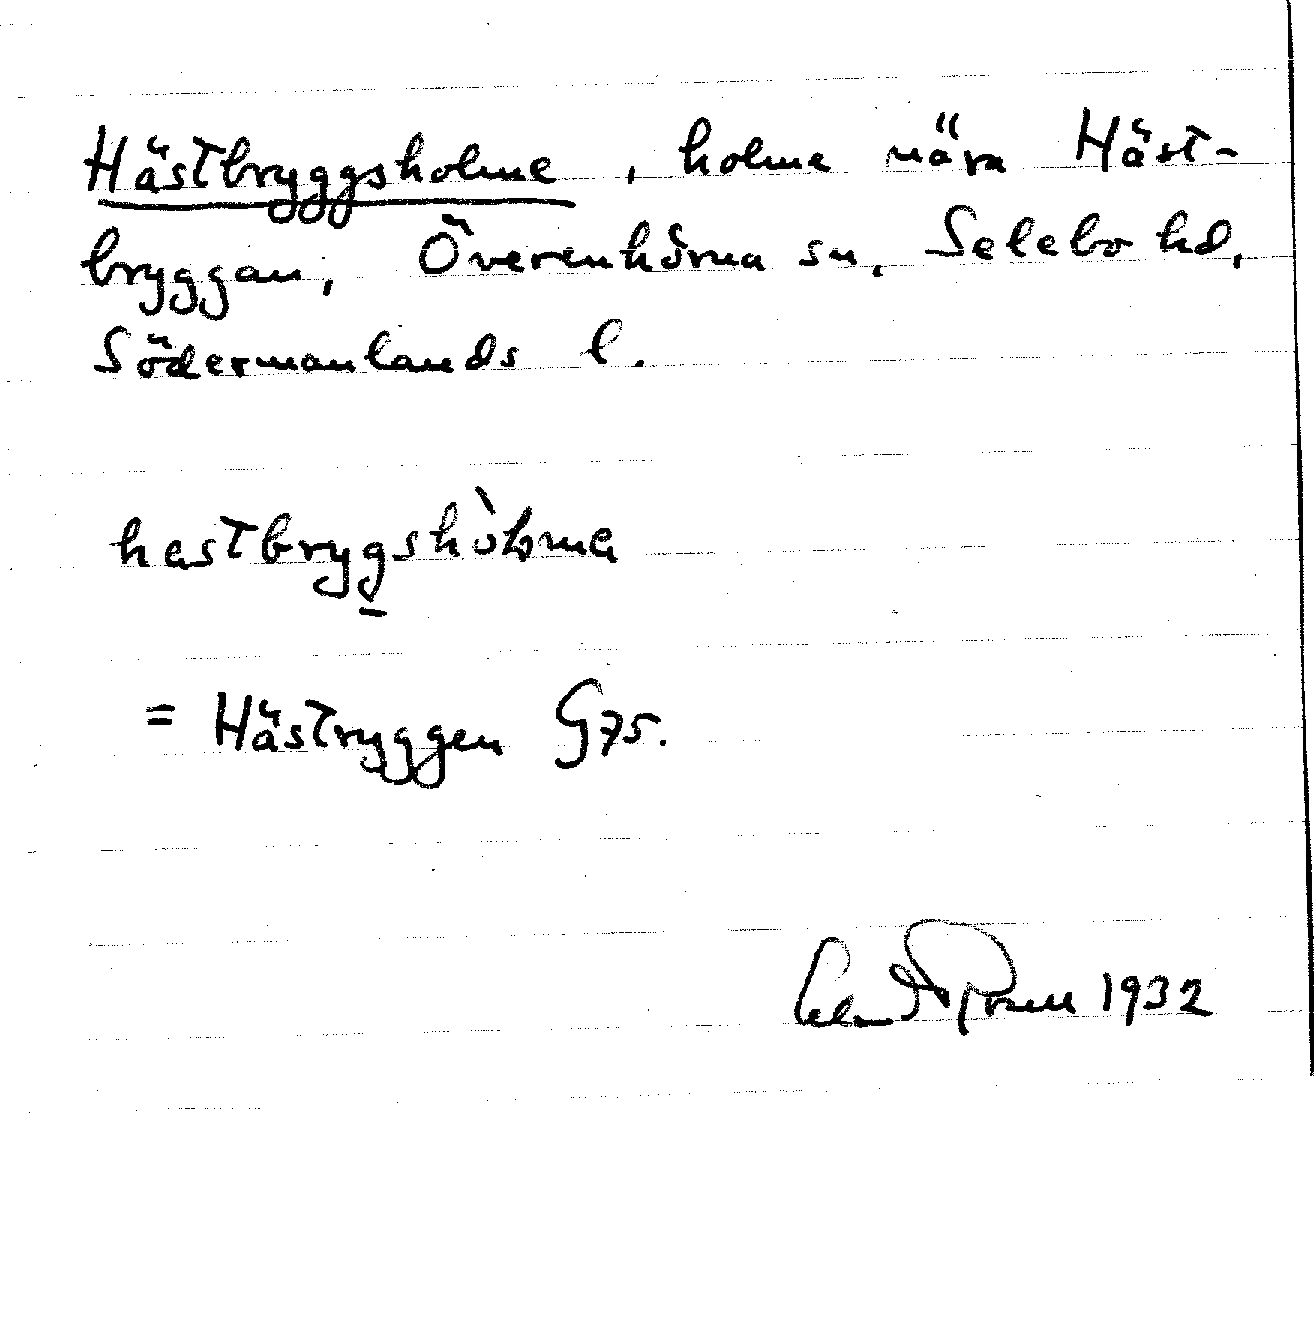 Hästbryggsholme, holme nära Häst-
bryggan, Överenhörna sn, Selebo hd,
Södermanlands l.
hastbrygshòlma
= Hästryggen G75.
1932